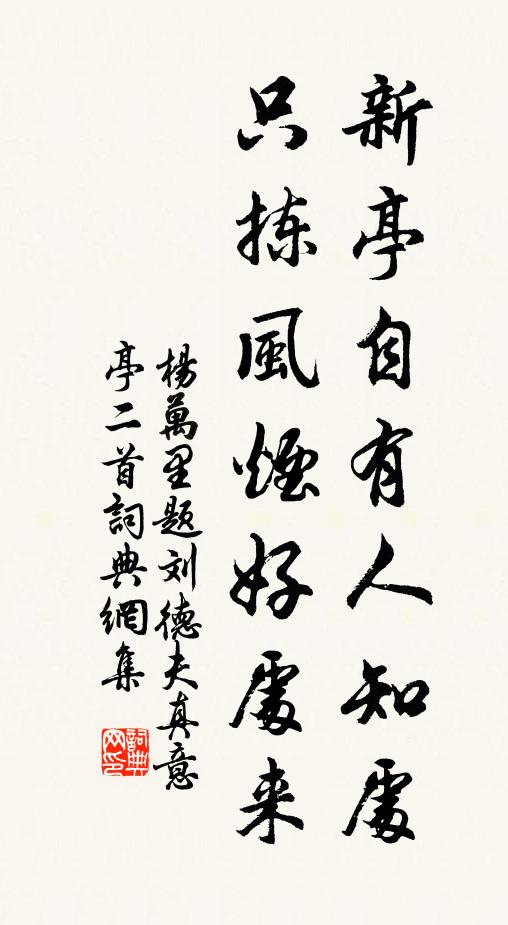 新亭自有人知處
只拣風煙好處来
楊萬里题刘德夫真意
亭二首詞典網集
詞典
网印